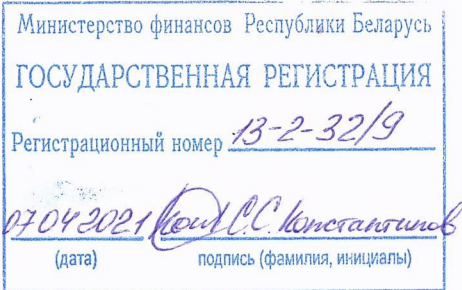 Министерство финансов Республики Беларусь
ГОСУДАРСТВЕННАЯ РЕГИСТРАЦИЯ
Регистрационный номер 13-2-32/9
07 04 2021 С.С. Константинов
(дата) подпись (фамилия, инициалы)